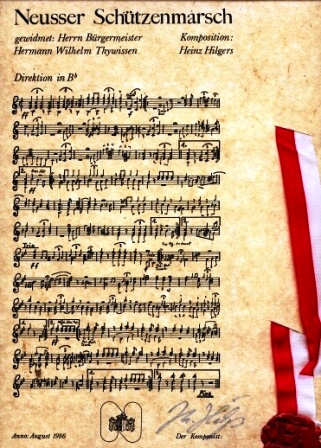 Neusser Schützenmarsch
gewidmet: Herrn Bürgermeister
Hermann Wilhelm Thywissen
Komposition:
Heinz Hilgers
Direktion in Bb
Trio
ff
Fine
Anno: August 1986
Der Komponist: